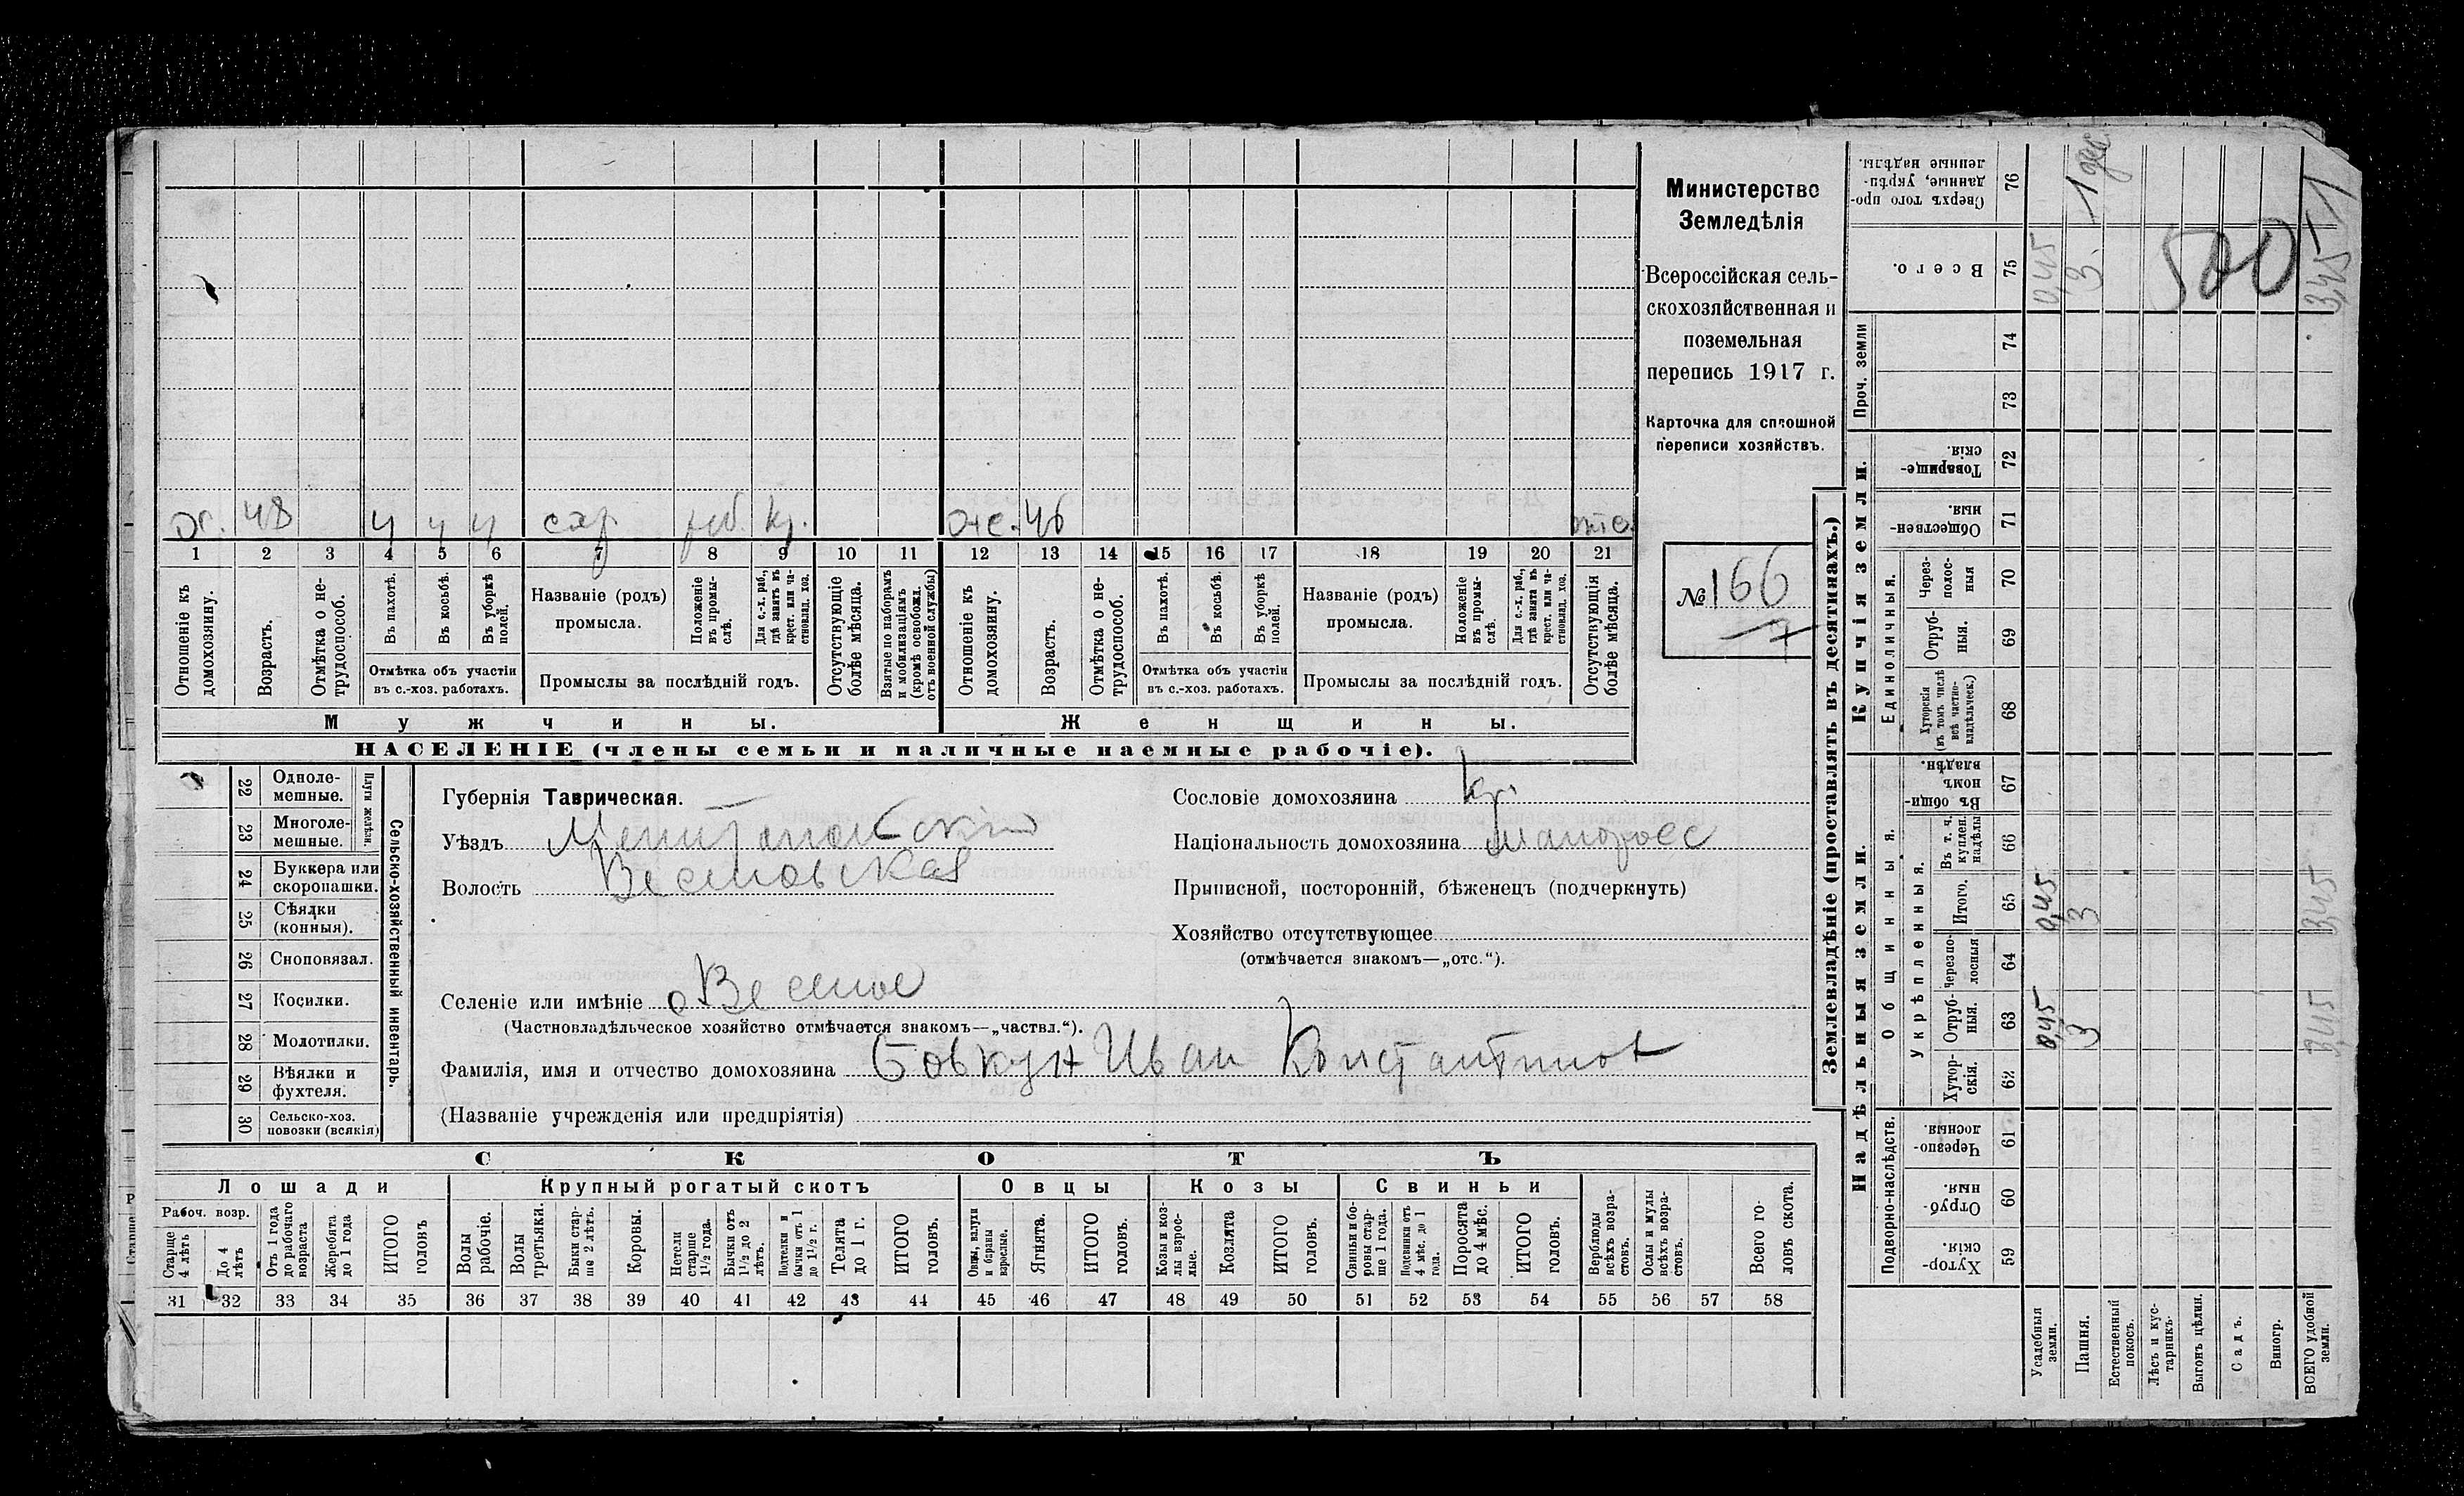 Министерство
Земледѣлія
Всероссійская сель-
скохозяйственная и
поземельная
перепись 1917 г.
Карточка для сплошной
переписи хозяйствъ.
№ 166
7
ог. 48 ч ч ч кр. 46
1 2 3 4 5 6 7 8 9 10 11 12 13 14 15 16 17 18 19 20 21
Отношеніе къ домохозяину.
Возрастъ.
Отмѣтка о не-трудоспособ.
Въ пахотѣ.
Въ косьбѣ.
Въ уборкѣ полей.
Отмѣтка объ участіи въ с.-хоз. работахъ.
Названіе (родъ) промысла.
Положеніе въ промы-слѣ.
Для с.-х. раб., гдѣ занятъ въ крест. или ча-стновлад. хоз.
Промыслы за послѣдній годъ.
Отсутствующіе болѣе мѣсяца.
Взятые по наборамъ и мобилизаціямъ (кромѣ освобожд. отъ военной службы)
Отношеніе къ домохозяину.
Возрастъ.
Отмѣтка о не-трудоспособ.
Въ пахотѣ.
Въ косьбѣ.
Въ уборкѣ полей.
Отмѣтка объ участіи въ с.-хоз. работахъ.
Названіе (родъ) промысла.
Положеніе въ промы-слѣ.
Для с.-х. раб., гдѣ занята въ крест. или ча-стновлад. хоз.
Промыслы за послѣдній годъ.
Отсутствующія болѣе мѣсяца.
Мужчины.
Женщины.
НАСЕЛЕНІЕ (члены семьи и наличные наемные рабочіе).
22 Одноле-мешные.
23 Многоле-мешные.
Плуги желѣзн.
24 Буккера или скоропашки.
25 Сѣялки (конныя).
26 Сноповязал.
27 Косилки.
28 Молотилки.
29 Вѣялки и фухтеля.
30 Сельско-хоз. повозки (всякія)
Сельско-хозяйственный инвентарь.
Губернія Таврическая.
Уѣздъ Мелитопольскій
Волость Веселовская
Селеніе или имѣніе с Веселое
(Частновладѣльческое хозяйство отмѣчается знакомъ—„частвл.“).
Фамилія, имя и отчество домохозяина Бовкун Иван Константинов
(Названіе учрежденія или предпріятія)
Сословіе домохозяина кр.
Національность домохозяина малоросс
Приписной, посторонній, бѣженецъ (подчеркнуть)
Хозяйство отсутствующее
(отмѣчается знакомъ—„отс.“).
СКОТЪ
Лошади
Крупный рогатый скотъ
Овцы
Козы
Свиньи
Рабоч. возр.
Старше 4 лѣтъ
До 4 лѣтъ
Отъ 1 года до рабочаго возраста
Жеребята до 1 года
ИТОГО головъ
Волы рабочіе.
Волы третьяки.
Быки стар-ше 2 лѣтъ.
Коровы.
Нетели старше 1½ года.
Бычки отъ 1½ до 2 лѣтъ.
Подтелки и бычки отъ 1 до 1½ г.
Телята до 1 г.
ИТОГО головъ.
Овцы, валухи и бараны взрослые.
Ягнята.
ИТОГО головъ.
Козы и коз-лы взрос-лые.
Козлята
ИТОГО головъ.
Свиньи и бо-ровы стар-ше 1 года.
Подсвинки отъ 4 мѣс. до 1 года.
Поросята до 4 мѣс.
ИТОГО головъ.
Верблюды всѣхъ возра-стовъ.
Ослы и мулы всѣхъ возра-стовъ.
Всего го-ловъ скота.
31 32 33 34 35 36 37 38 39 40 41 42 43 44 45 46 47 48 49 50 51 52 53 54 55 56 57 58
Землевладѣніе (проставлять въ десятинахъ.)
Надѣльныя земли.
Купчія земли.
Проч. земли
Подворно-наслѣдств.
Общинныя.
Укрѣпленныя.
Единоличныя.
Сверхъ того про-данные, укрѣп-ленные надѣлы. 76 1 дес
Всего. 75 0,45 3. 500 3,45
74
73
Товарище-скія. 72
Обществен-ныя. 71
Через-полос-ныя 70
Отруб-ныя. 69
Хуторскія (въ томъ числѣ всѣ частно-владѣльческ.) 68
Въ общин-номъ владѣн. 67
Въ т. ч. куплен. надѣлы 66
Итого. 65 0,45 3 3,45
Черезпо-лосныя 64
Отруб-ныя. 63 0,45 3 3,45
Хутор-скія. 62
Черезпо-лосныя. 61
Отруб-ныя. 60
Хутор-скія. 59
Усадебныя земли.
Пашня.
Естественный покосъ.
Лѣсъ и кус-тарникъ.
Выгонъ цѣлин.
Садъ.
Виногр.
ВСЕГО удобной земли.